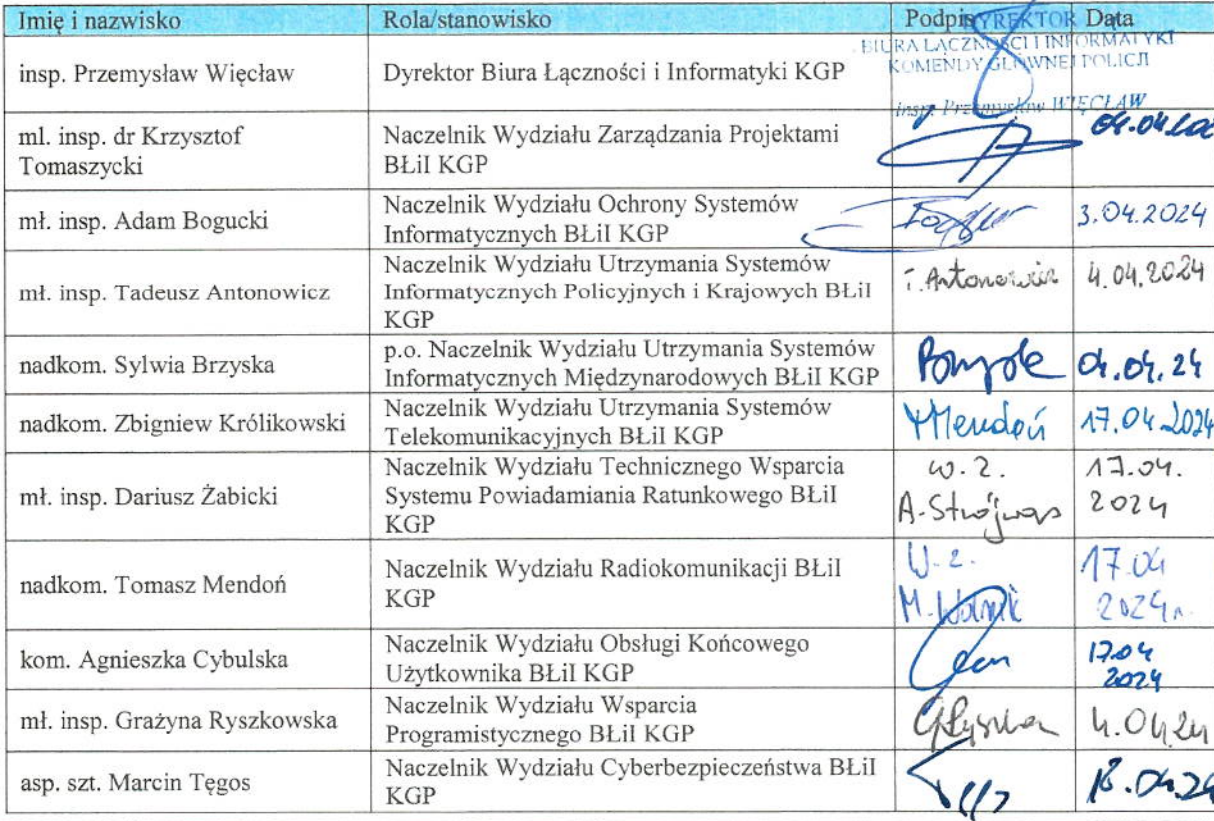 Imię i nazwisko Rola/stanowisko Podpis Data
DYREKTOR
BIURA ŁĄCZNOŚCI I INFORMATYKI
KOMENDY GŁÓWNEJ POLICJI
insp. Przemysław WIĘCŁAW
insp. Przemysław Więcław Dyrektor Biura Łączności i Informatyki KGP
ml. insp. dr Krzysztof
Tomaszycki
Naczelnik Wydziału Zarządzania Projektami
BŁiI KGP
mł. insp. Adam Bogucki
Naczelnik Wydziału Ochrony Systemów
Informatycznych BŁiI KGP
3.04.2024
mł. insp. Tadeusz Antonowicz
Naczelnik Wydziału Utrzymania Systemów
Informatycznych Policyjnych i Krajowych BŁiI
KGP
T. Antonowicz 4.04.2024
nadkom. Sylwia Brzyska
p.o. Naczelnik Wydziału Utrzymania Systemów
Informatycznych Międzynarodowych BŁiI KGP
04.04.24
nadkom. Zbigniew Królikowski
Naczelnik Wydziału Utrzymania Systemów
Telekomunikacyjnych BŁiI KGP
Mendoń 17.04.2024
mł. insp. Dariusz Żabicki
Naczelnik Wydziału Technicznego Wsparcia
Systemu Powiadamiania Ratunkowego BŁiI
KGP
w. z.
A. Strójwąs
17.04.
2024
nadkom. Tomasz Mendoń
Naczelnik Wydziału Radiokomunikacji BŁiI
KGP
W. z.
M. Wolnik
17.04
2024r.
kom. Agnieszka Cybulska
Naczelnik Wydziału Obsługi Końcowego
Użytkownika BŁiI KGP
17.04
2024
mł. insp. Grażyna Ryszkowska
Naczelnik Wydziału Wsparcia
Programistycznego BŁiI KGP
4.04.24
asp. szt. Marcin Tęgos
Naczelnik Wydziału Cyberbezpieczeństwa BŁiI
KGP